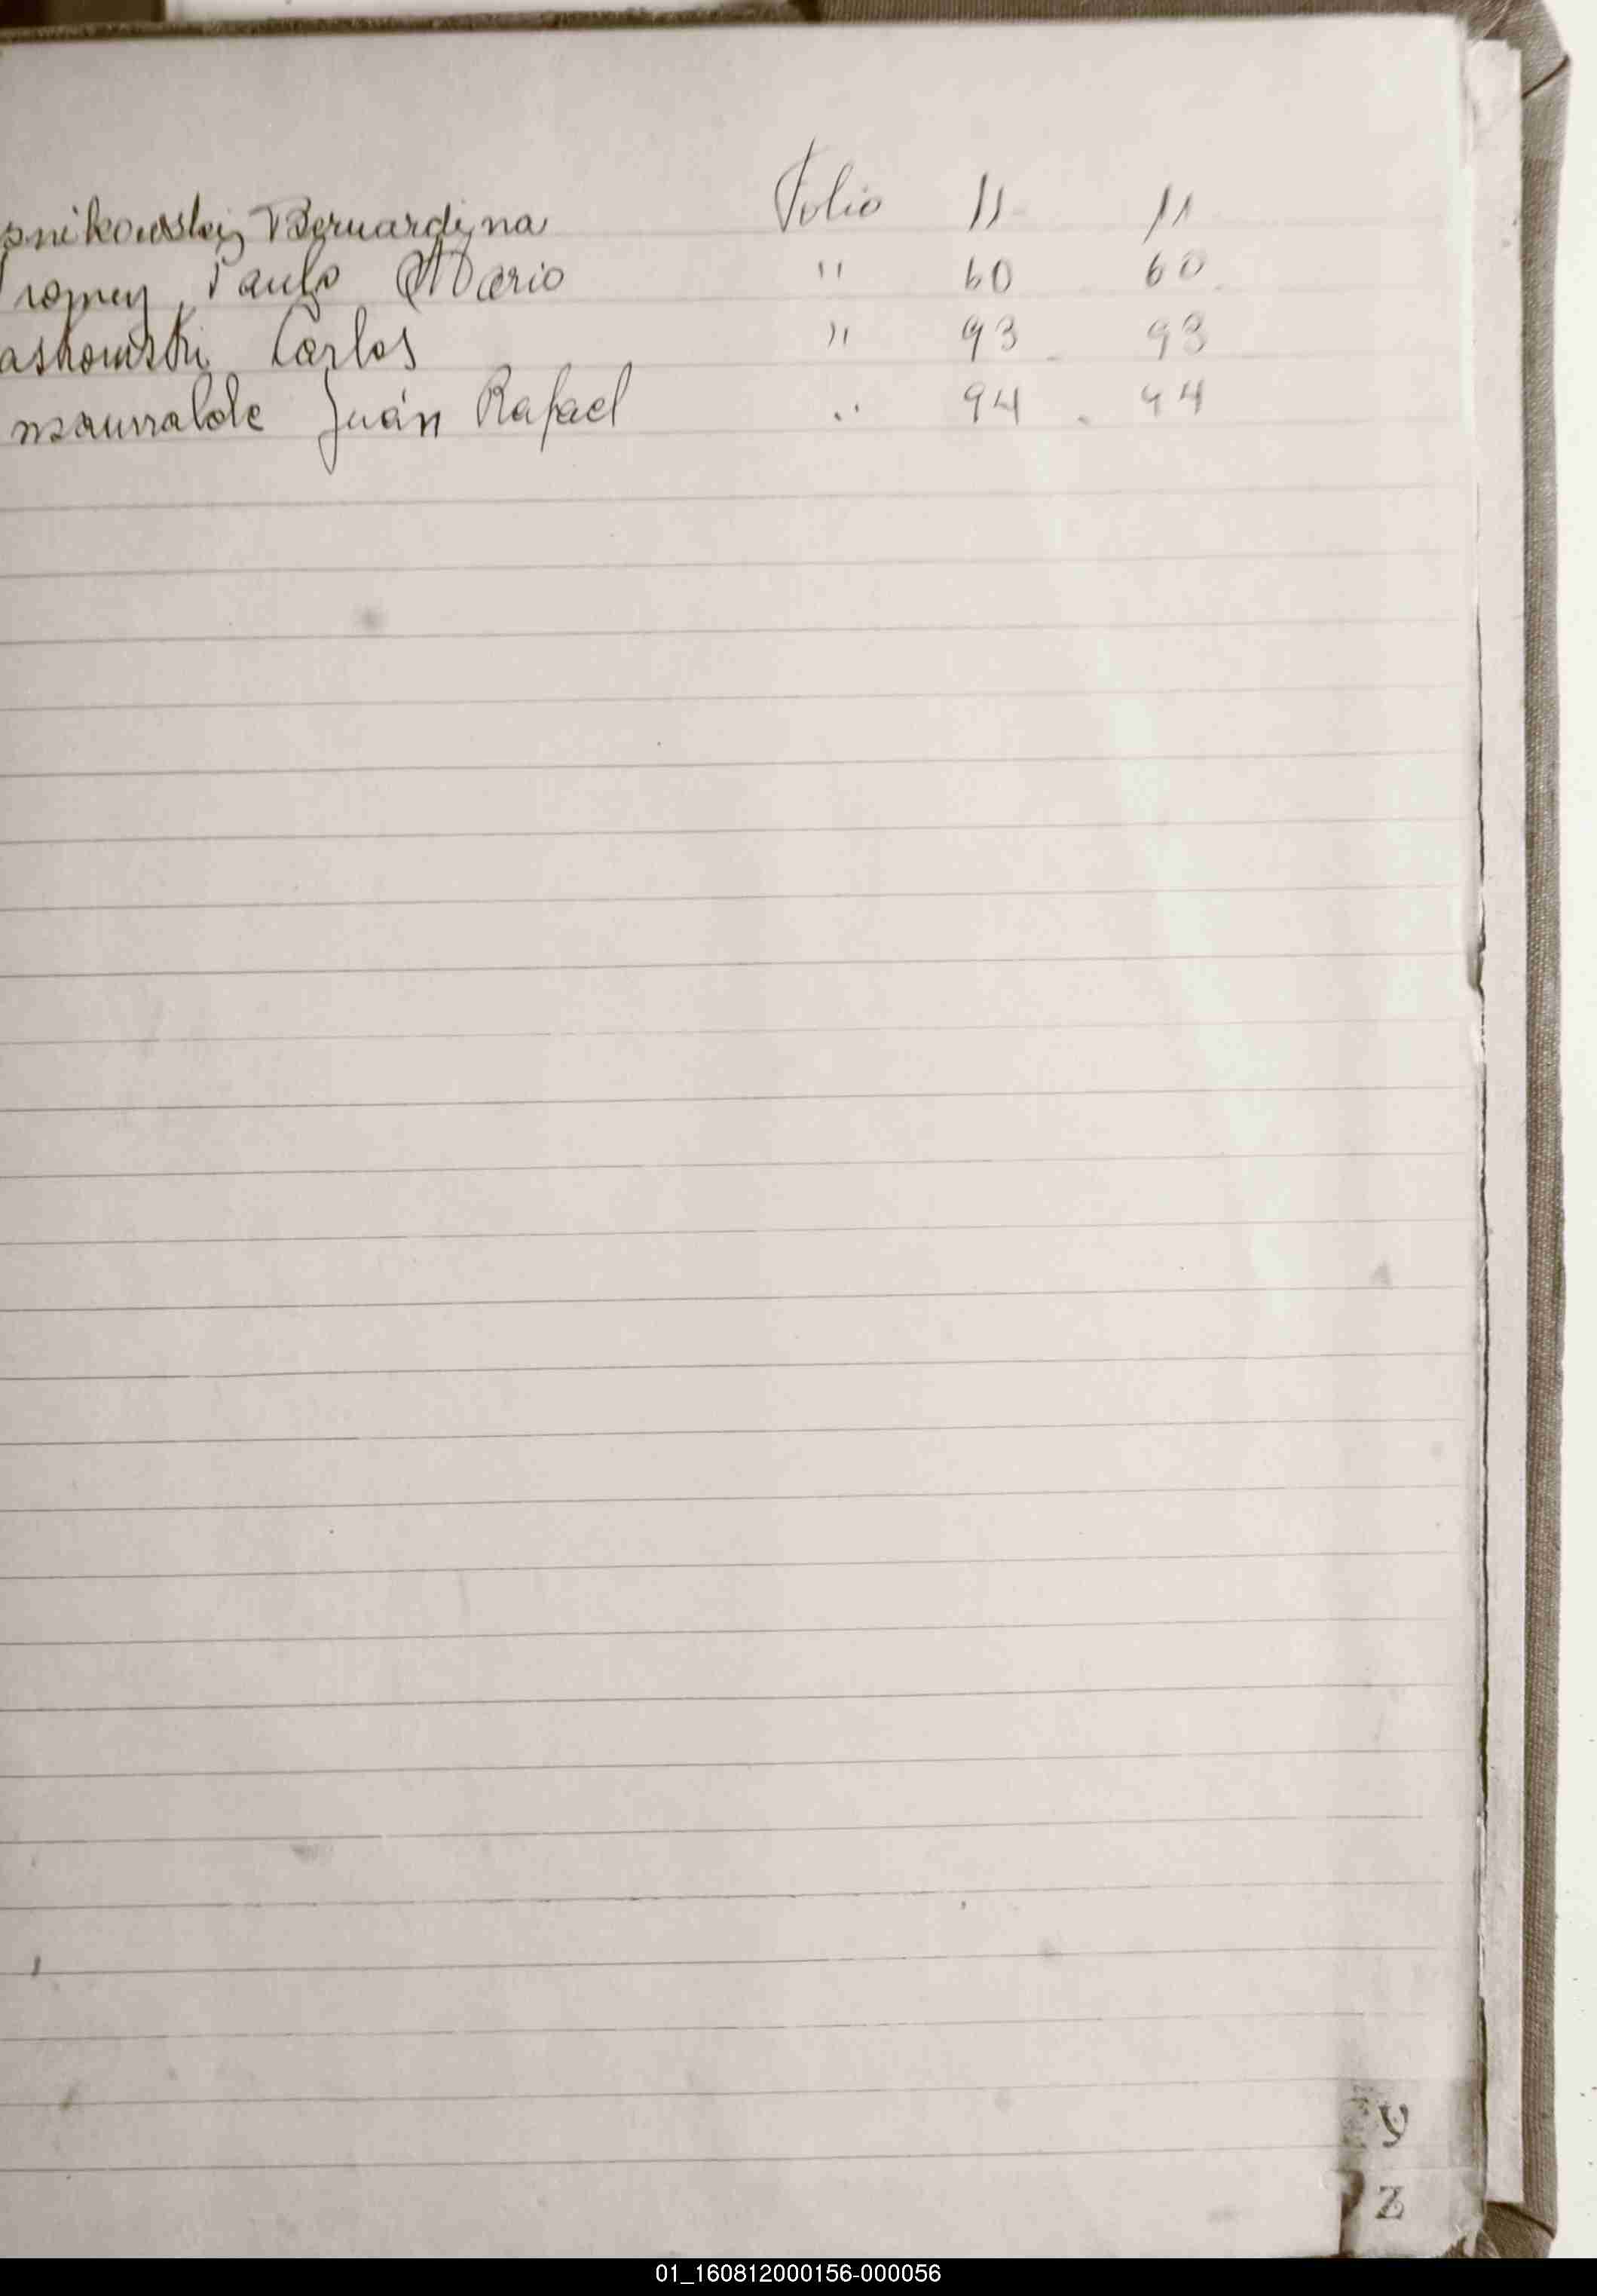 snikowski, Bernardina Folio 11 11
romey, Paulo Mario " 60 60
askowski Carlos " 93 93
nzaurralde Juán Rafael " 94 94
Y
Z
01_160812000156-000056